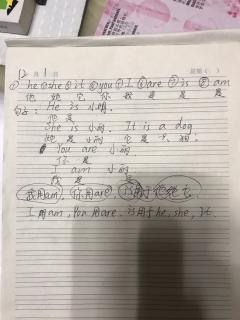 12月1日 星期( )
①he ②she ③it ④you ⑤I ⑥are ⑦is ⑧am
他 她 它 你 我 是 是 是
句子: He is 小明.
他 是
She is 小雨. It is a dog
她 是 小雨. 它 是 一 狗.
You are 小雨.
你 是
I am 小雨.
我 是
我用am, 你用are, is用于他她它
I 用am, You 用are. is用于he, she, it.